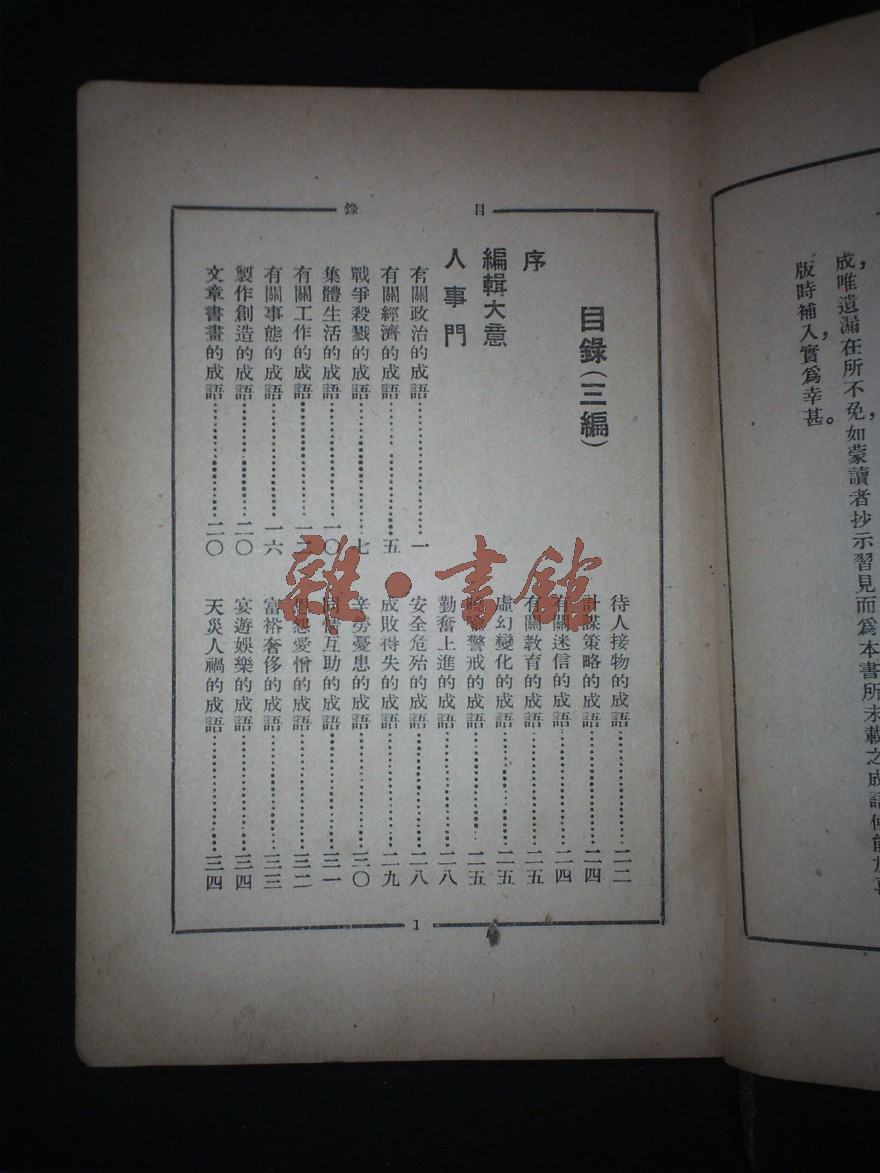 成，唯遺漏在所不免，如蒙讀者抄示習見而爲本書所未載之成語
版時補入，實爲幸甚。
目錄
目錄（三編）
序
編輯大意
人事門
有關政治的成語……一
有關經濟的成語……五
戰爭殺戮的成語……七
集體生活的成語……一〇
有關工作的成語……一二
有關事態的成語……一六
製作創造的成語……二〇
文章書畫的成語……二〇
待人接物的成語……二二
計謀策略的成語……二四
有關迷信的成語……二四
有關教育的成語……二五
虛幻變化的成語……二五
警戒的成語……二五
勤奮上進的成語……二八
安全危殆的成語……二八
成敗得失的成語……二九
辛勞憂患的成語……三〇
同情互助的成語……三一
恩怨愛憎的成語……三二
富裕奢侈的成語……三三
宴遊娛樂的成語……三四
天災人禍的成語……三四
1
雜·書館